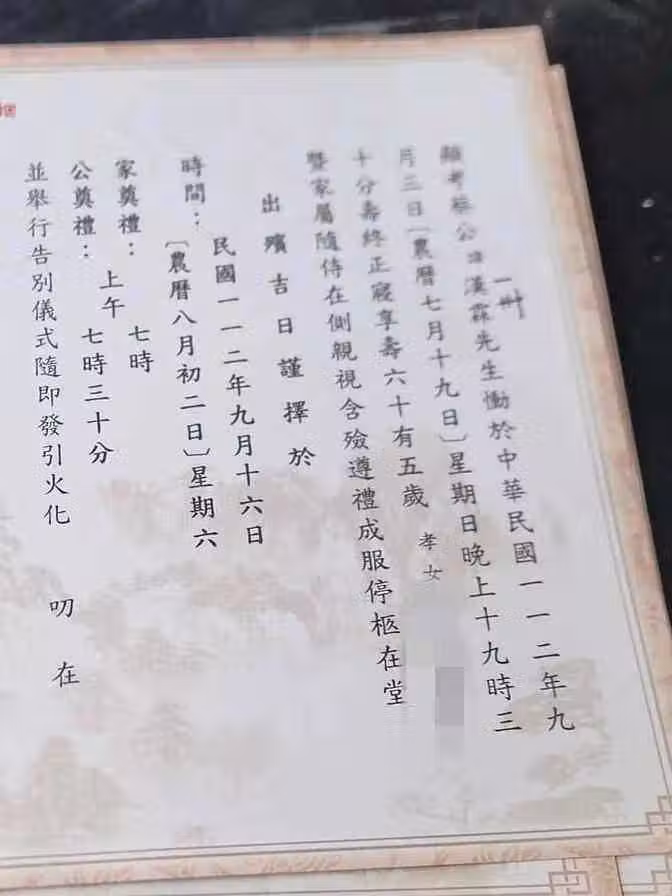 顯考蔡公漢霖先生慟於中華民國一一二年九
月三日〔農曆七月十九日〕星期日晚上十九時三
十分壽終正寢享壽六十有五歲 孝女
暨家屬隨侍在側親視含殮遵禮成服停柩在堂
出殯吉日謹擇於
時間：
民國一一二年九月十六日
〔農曆八月初二日〕星期六
家奠禮：上午 七時
公奠禮：七時三十分
並舉行告別儀式隨即發引火化 叨在